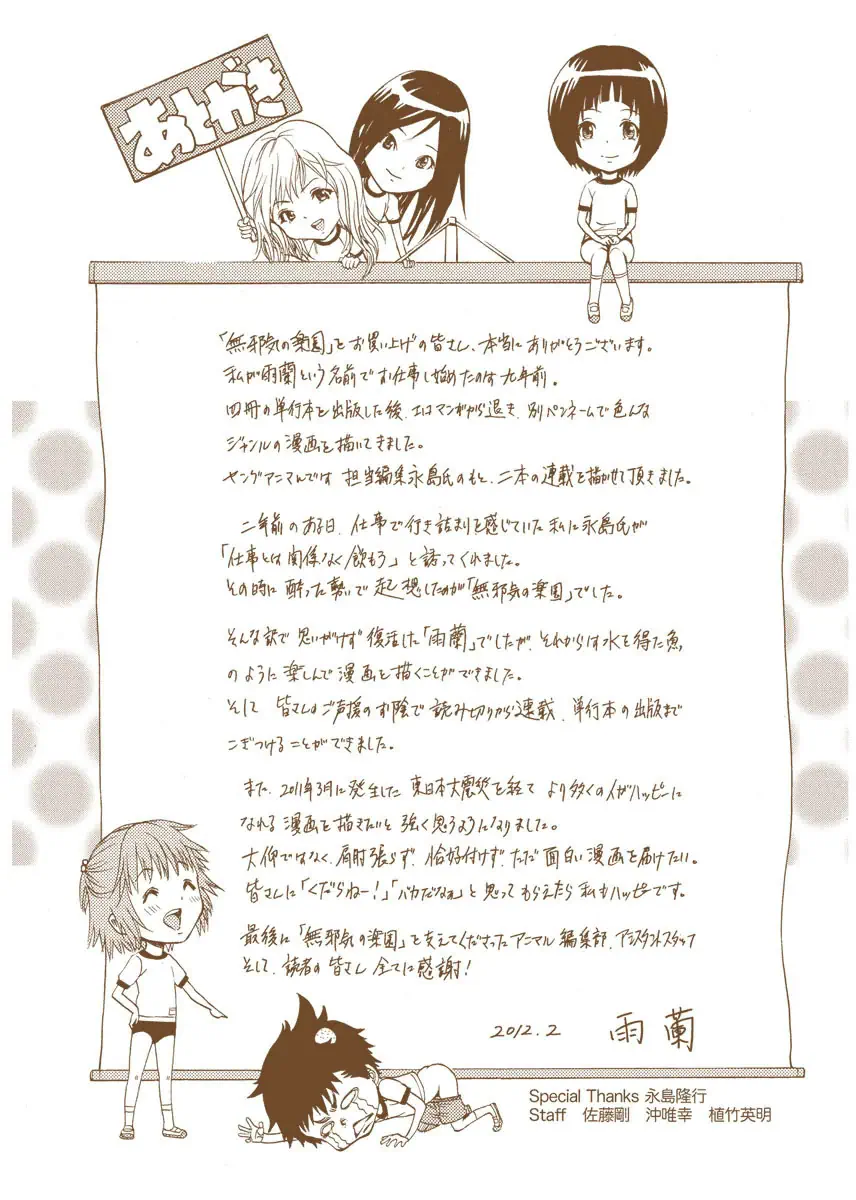 あとがき
「無邪気の楽園」をお買い上げの皆さん、本当にありがとうございます。
私が雨蘭という名前でお仕事し始めたのは九年前。
四冊の単行本を出版した後、エロマンガから退き、別ペンネームで色んな
ジャンルの漫画を描いてきました。
ヤングアニマルでは 担当編集永島氏のもと、二本の連載を描かせて頂きました。
二年前のある日、仕事で行き詰まりを感じていた私に永島氏が
「仕事とは関係なく飲もう」と誘ってくれました。
その時に酔った勢いで起想したのが「無邪気の楽園」でした。
そんな訳で思いがけず復活した「雨蘭」でしたが、それからは水を得た魚
のように楽しんで漫画を描くことができました。
そして 皆さんのご声援のお陰で読み切りから連載、単行本の出版まで
こぎつけることができました。
また、2011年3月に発生した東日本大震災を経て より多くの人がハッピーに
なれる漫画を描きたいと強く思うようになりました。
大仰ではなく、肩肘張らず、恰好付けず、ただ面白い漫画を届けたい。
皆さんに「くだらねー!」「バカだなぁ」と思ってもらえたら私もハッピーです。
最後に「無邪気の楽園」を支えてくださったアニマル編集部、アシスタントスタッフ
そして、読者の皆さん全てに感謝!
2012.2 雨蘭
Special Thanks 永島隆行
Staff 佐藤剛 沖唯幸 植竹英明